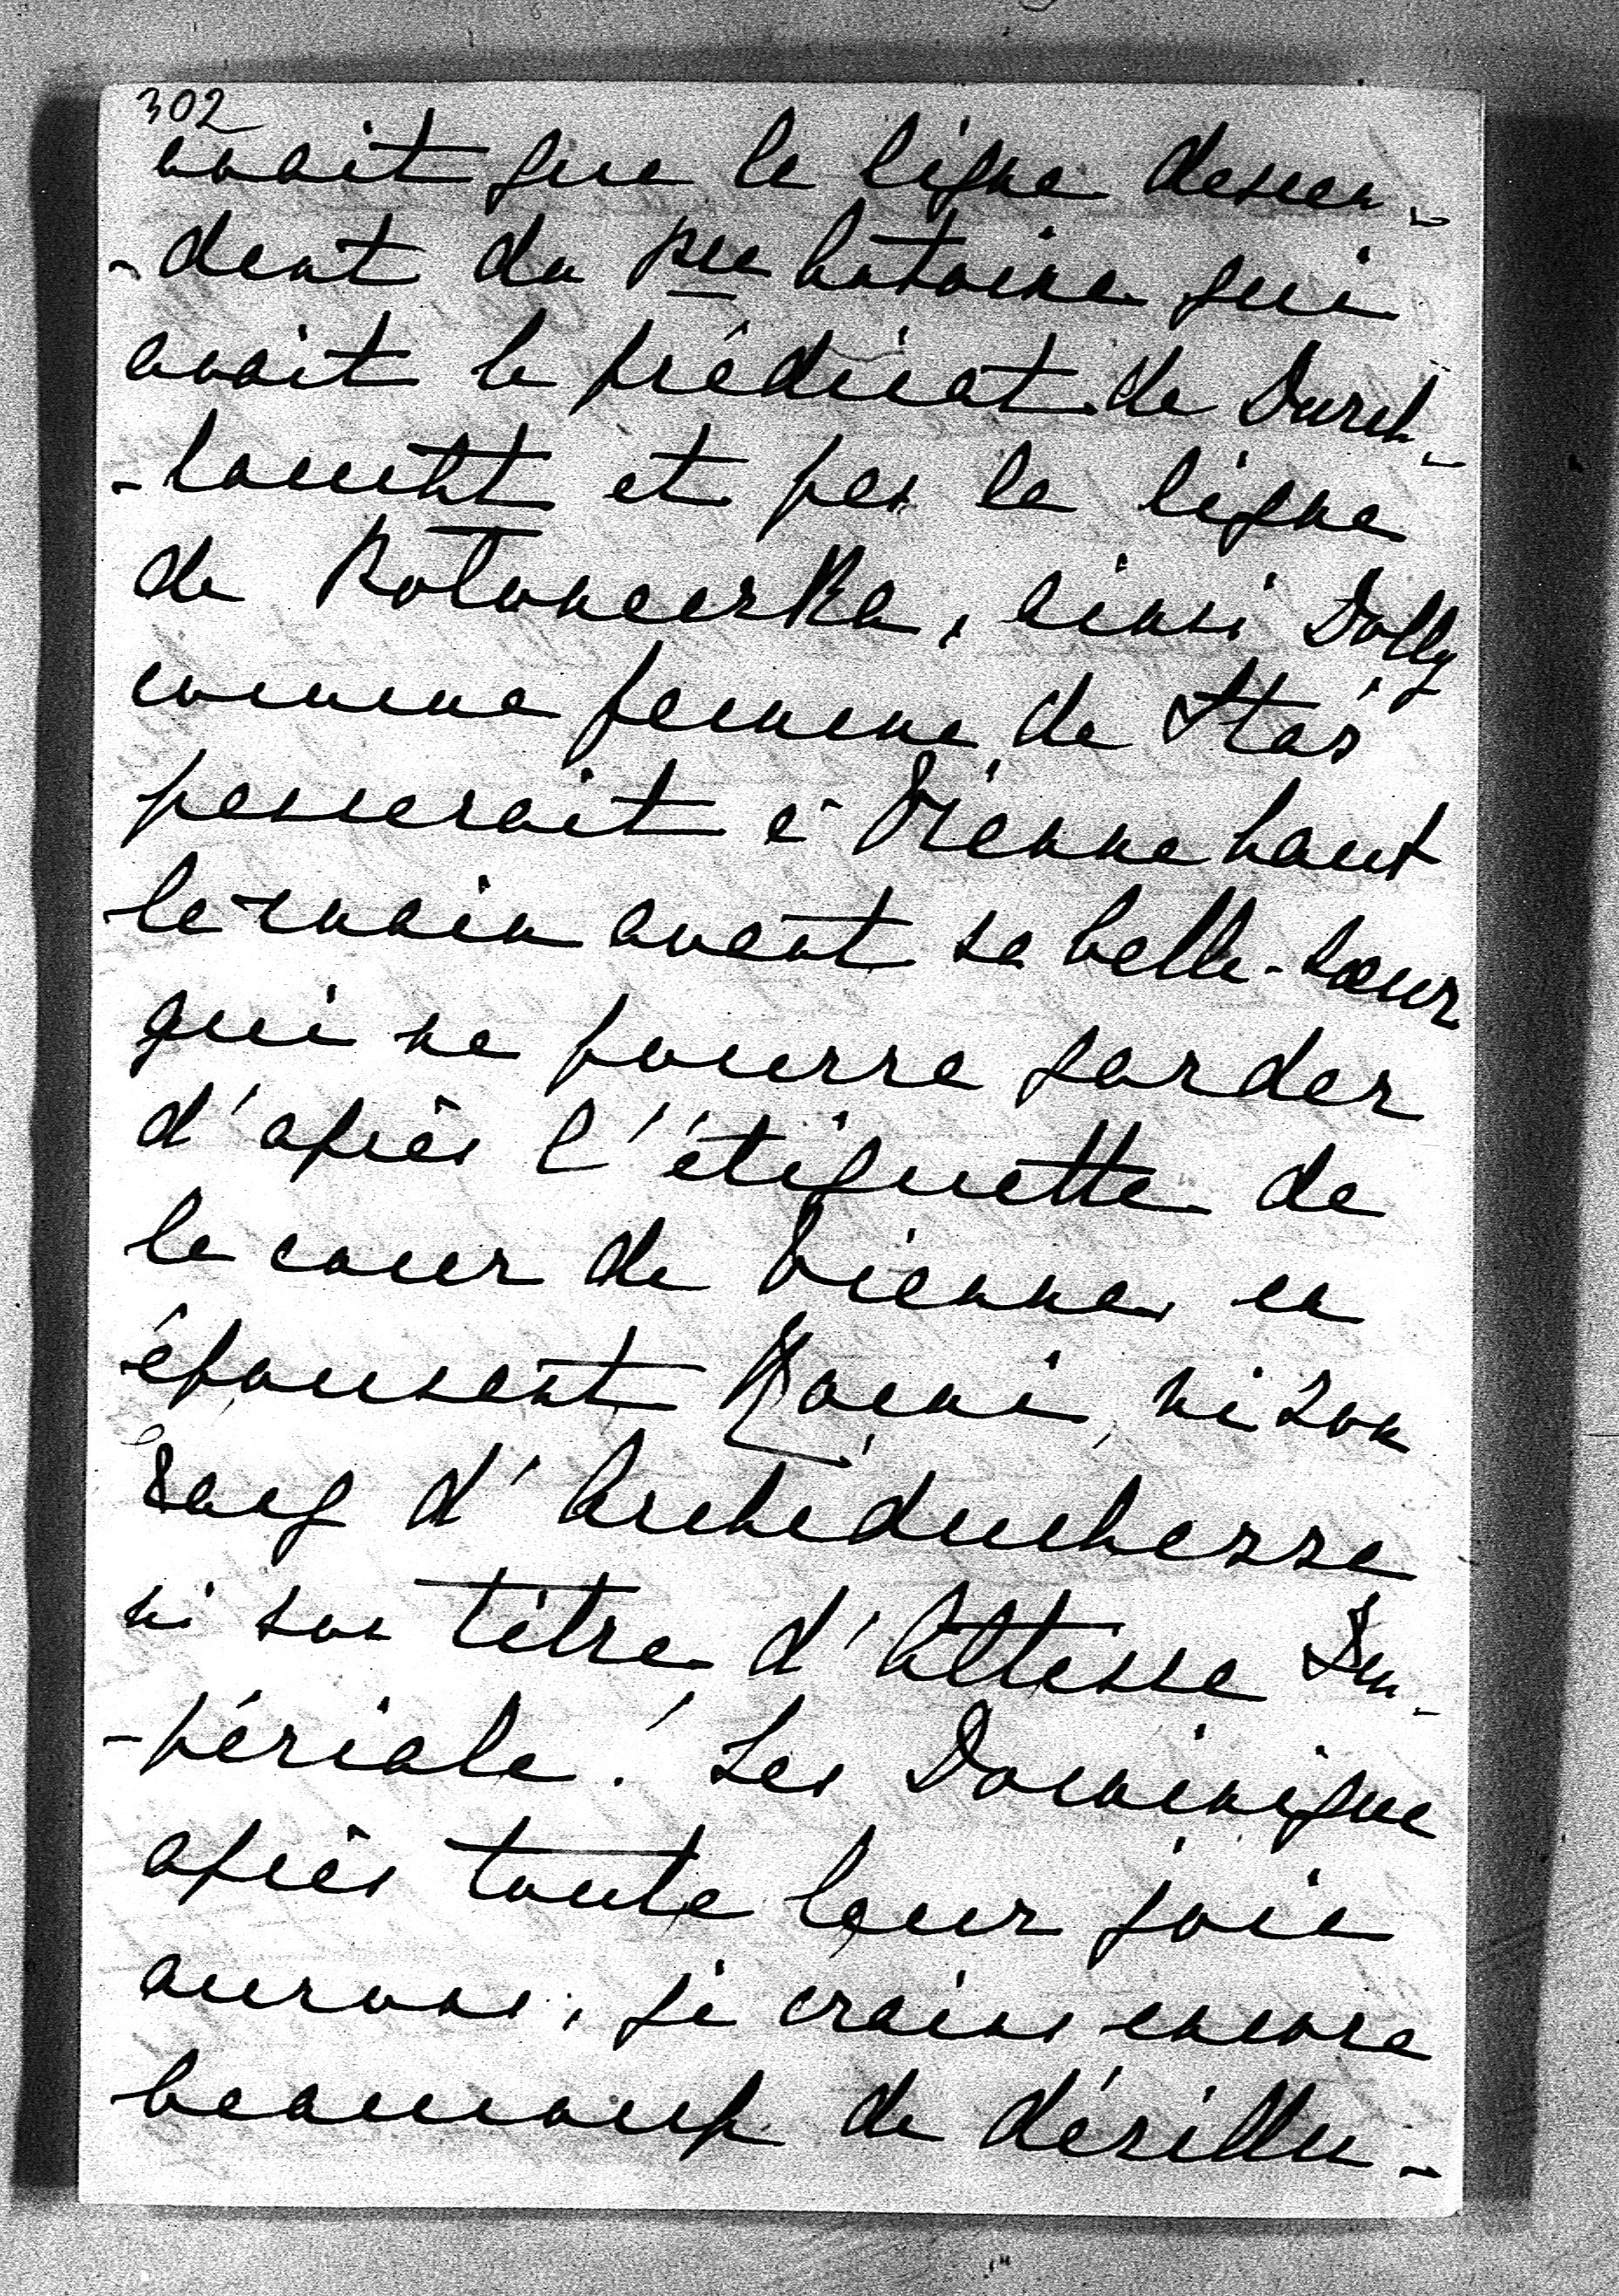 302
avait que la ligne descen-
-dent du Pce Antoine qui
avait le prédicat de Durch-
-laucht et pas la ligne
de Rolomierka, ainsi Dolly
comme femme de Stas
passerait à Vienne haut
la main avant sa belle-sœur
qui ne pourra garder
d'après l'étiquette de
la cour de Vienne, en
épousant ni son
rang d'Archiduchesse
ni son titre d'Altesse Im-
-périale! Les Dominique
après toute leur joie
aurons, je crains encore
beaucoup de désillu-